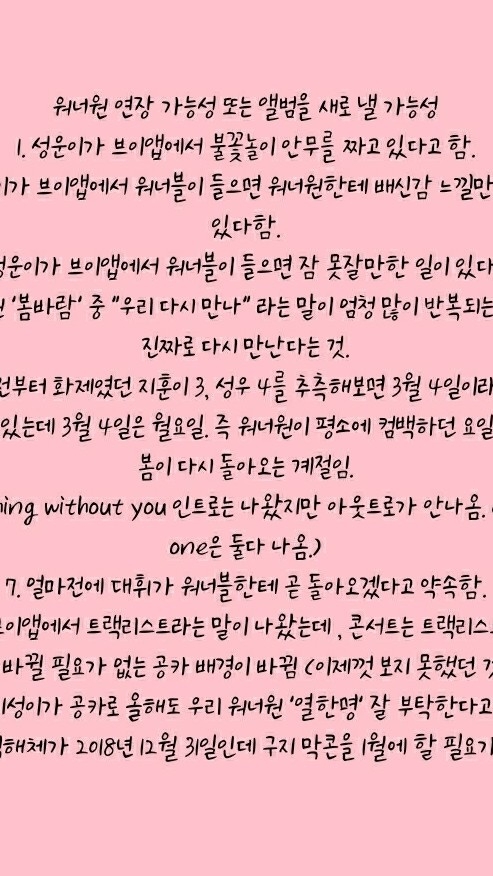 워너원 연장 가능성 또는 앨범을 새로 낼 가능성
1. 성운이가 브이앱에서 불꽃놀이 안무를 짜고 있다고 함.
이가 브이앱에서 워너블이 들으면 워너원한테 배신감 느낄만
있다함.
성운이가 브이앱에서 워너블이 들으면 잠 못잘만한 일이 있다
'봄바람' 중 "우리 다시 만나" 라는 말이 엄청 많이 반복되는
진짜로 다시 만난다는 것.
전부터 화제였던 지훈이 3, 성우 4를 추측해보면 3월 4일이라
있는데 3월 4일은 월요일. 즉 워너원이 평소에 컴백하던 요일
봄이 다시 돌아오는 계절임.
hing without you 인트로는 나왔지만 아웃트로가 안나옴.
one은 둘다 나옴.)
7. 얼마전에 대휘가 워너블한테 곧 돌아오겠다고 약속함.
브이앱에서 트랙리스트라는 말이 나왔는데, 콘서트는 트랙리스
바뀔 필요가 없는 공카 배경이 바뀜 (이제껏 보지 못했던 것
지성이가 공카로 올해도 우리 워너원 '열한명' 잘 부탁한다고
해체가 2018년 12월 31일인데 구지 막콘을 1월에 할 필요가